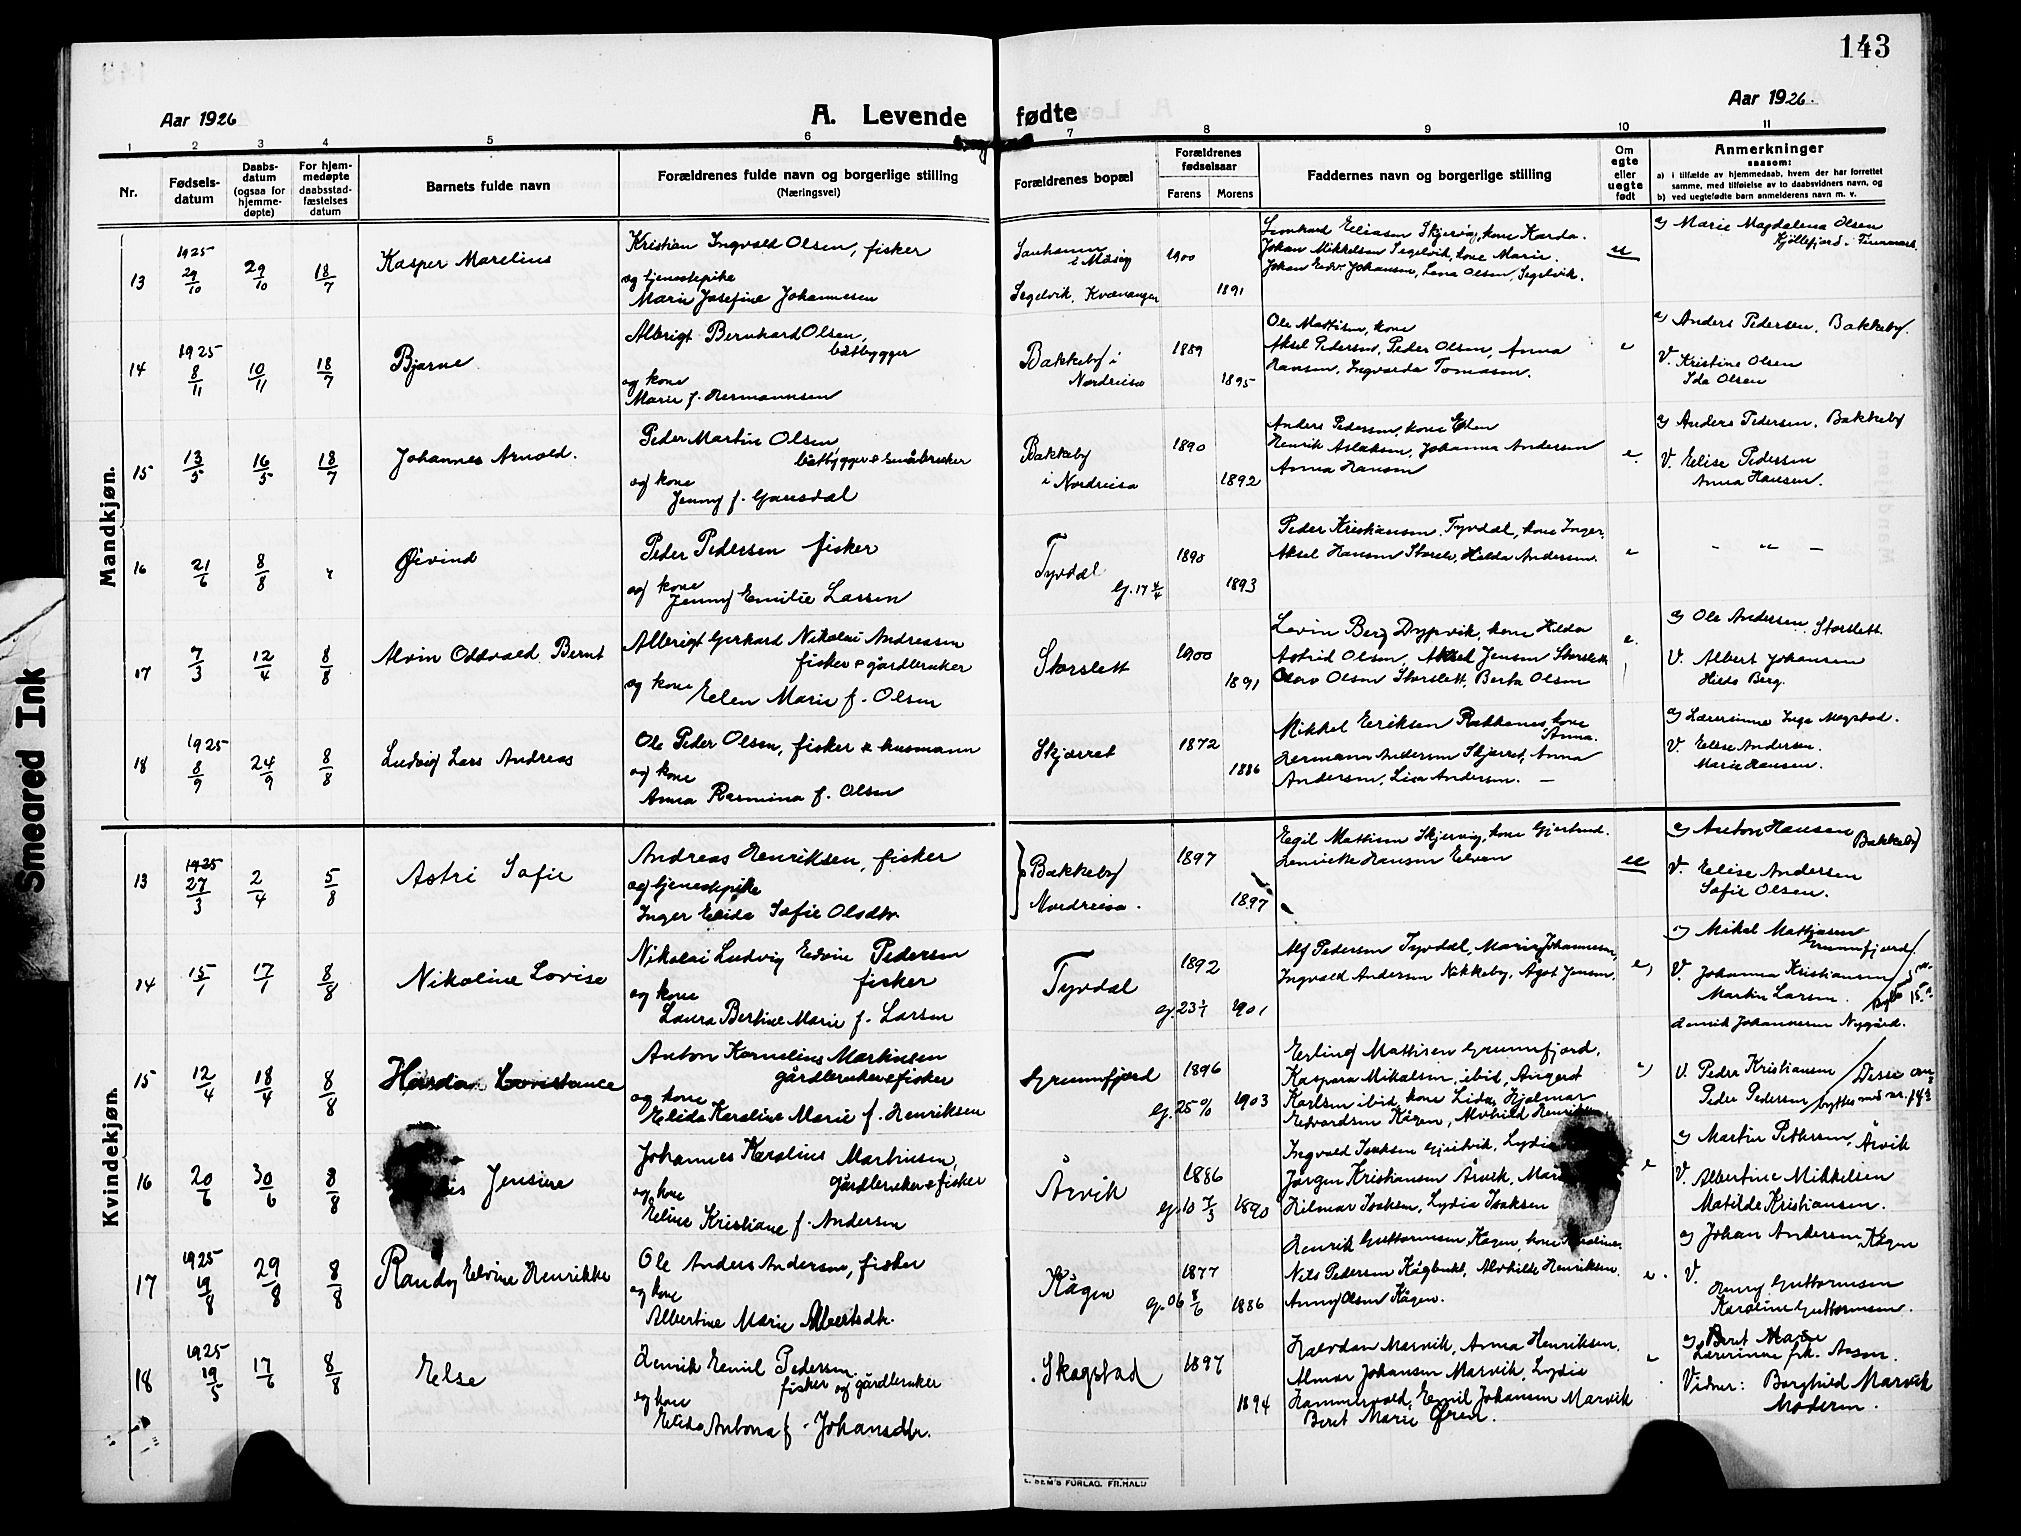 143
Aar 1926
A. Levende
fødte
Aar 1926.
1 2 3 4 5 6 7 8 9 10 11
Nr.
Fødsels-
datum
Daabs-
datum
(ogsaa for
hjemme-
døpte)
For hjem-
medøpte
daabsstad-
fæstelses
datum
Barnets fulde navn
Forældrenes fulde navn og borgerlige stilling
(Næringsvei)
Forældrenes bopæl
Forældrenes
fødselsaar
Farens
Morens
Faddernes navn og borgerlige stilling
Om
egte
eller
uegte
født
Anmerkninger
saasom:
a) i tilfælde av hjemmedaab, hvem der har forrettet
samme, med tilføielse av to daabsvidners navn, og
b) ved uegtefødte børn anmelderens navn m. v.
Mandkjøn.
13
1925
29/10
29/10
18/7
Kasper Marelius
Kristian Ingvald Olsen, fisker
og tjenestepike
Marie Josefine Johannesen
Segelvik, Kvænangen
1900
1891
Leonhard Eliasen Skjervøy, kone Karda.
Johan Mikkelsen Segelvik, kone Marie.
Johan Edv. Johansen, Lena Olsen, Segelvik.
ue
a) Marie Magdalena Olsen
Kjøllefjord, Finnmark
14
1925
8/11
10/11
18/7
Bjarne
Albrigt Bernhard Olsen,
båtbygger
og kone
Marie f. Hermannsen
Bakkeby i
Nordreisa
1889
1895
Ole Mattisen, kone
Aksel Pedersen, Peder Olsen, Anna
Hansen, Ingvarda Tomasen.
e
a) Anders Pedersen, Bakkeby.
V. Kristine Olsen
Ida Olsen
15
13/5
16/5
18/7
Johannes Arnold.
Peder Martin Olsen,
båtbygger & småbruker
og kone
Jenny f. Gansdal
Bakkeby
i Nordreisa
1890
1892
Anders Pedersen, kone Elen
Henrik Aslaksen, Johanna Andersen
Anna Hansen
e.
a) Anders Pedersen, Bakkeby
V. Elise Pedersen
Anna Hansen.
16
21/6
8/8
Øivind
Peder Pedersen fisker
og kone
Jenny Emilie Larsen
Tyvdal
g. 17 4/4
1890
1893
Peder Kristiansen Tyvdal, kone Inger,
Aksel Hansen Storslett, Hilda Andersen.
e
- " -
17
7/3
12/4
8/8
Alvin Oddvald Bernt
Albrigt Gerhard Nikolai Andreassen
fisker & gårdbruker
og kone
Elen Marie f. Olsen
Storslett
1900
1891
Levin Berg Dypvik, kone Hilda
Astrid Olsen, Aksel Jensen Storslett
Olav Olsen Storslett, Berta Olsen
e.
a) Ole Andersen, Storslett
V. Albert Johansen
Hilda Berg.
18
1925
8/9
24/9
8/8
Ludvig Lars Andreas
Ole Peder Olsen, fisker & husmann
og kone
Anna Rasmina f. Olsen
Skjærret
1872
1886
Mikkel Eriksen Rakkenes, kone
Anna.
Hermann Andersen Skjærret, Anna
Andersen, Lisa Andersen. —
a) Lærerinne Inga Møgstad.
V. Elise Andersen.
Marie Hansen.
Kvindekjøn.
13
1925
27/3
2/4
5/8
Astri Sofie
Andreas Henriksen, fisker
og tjenestepike
Inger Elida Sofie Olsdtr.
Bakkeby
Nordreisa.
1897
1897
Egil Mattisen Skjervøy, kone Gjertrud.
Henrikke Hansen Elven
ue
a) Anton Hansen
Bakkeby
V. Elise Andersen
Sofie Olsen.
14
15/1
17/1
8/8
Nikoline Lovise
Nikolai Ludvig Edvin Pedersen
fisker
og kone
Laura Bertine Marie f. Larsen
Tyvdal
g. 23 1/1
1892
1901
Alf Pedersen Tyvdal, Marie Johannesen,
Ingvald Andersen Nikkeby, Agot Jensen.
e,
a) Mikal Mattiasen
Grunnfjord
V. Johanna Kristiansen
Martin Larsen.
15
12/4
18/4
8/8
Anton Kornelius Martinsen
gårdbruker & fisker
og kone
Elida Karoline Marie f. Henriksen
Grunnfjord
1896
1903
Erling Mattisen Grunnfjord,
Kaspara Mikalsen, ibid, Angert
Karlsen ibid, kone Lida, Hjalmar
Edvardsen Kågen, Alvhild Henriksen
e)
Henrik Johannesen Nygård.
V. Peder Kristiansen
Peder Pedersen
16
20/6
30/6
8/8
Jensine
Johannes Karolius Martinsen,
gårdbruker & fisker
og kone
Eline Kristiane f. Andersen
Årvik
g. 10 7/3
1886
1890
Ingvald Isaksen Gjeilvik, Lydia
Jørgen Kristiansen Årvik,
Hilmar Isaksen, Lydia Isaksen
e
a) Martin Pettersen, Årvik
V. Albertine Mikkelsen
Matilde Kristiansen.
17
1925
19/8
29/8
8/8
Randy Elvine Henrikke
Ole Anders Andersen, fisker
og kone
Albertine Marie Albertsdtr.
Kågen
g. 06 8/6
1877
1886
Henrik Guttormsen, Kågen, kone Karoline.
Nils Pedersen Kågbukt, Alvhilde Henriksen.
Anny Olsen Kågen.
e.
a) Johan Andersen Kågen
V.
Henny Guttormsen
Karoline Guttormsen.
18
1925
19/5
17/6
8/8
Else
Henrik Emil Pedersen
fisker og gårdbruker
og kone
Elida Antona f. Johansdtr.
Skogstad
1897
1894
Halvdan Marvik, Anna Henriksen.
Almar Johansen Marvik, Lydia
Hammervold, Emil Johansen Marvik
Beret Marie Øren.
e
a) Beret Marie
Lærerinne frk. Aasen.
Vidner: Borghild Marvik
Moderen.
E. SEM'S FORLAG. FR.HALD
Smeared Ink